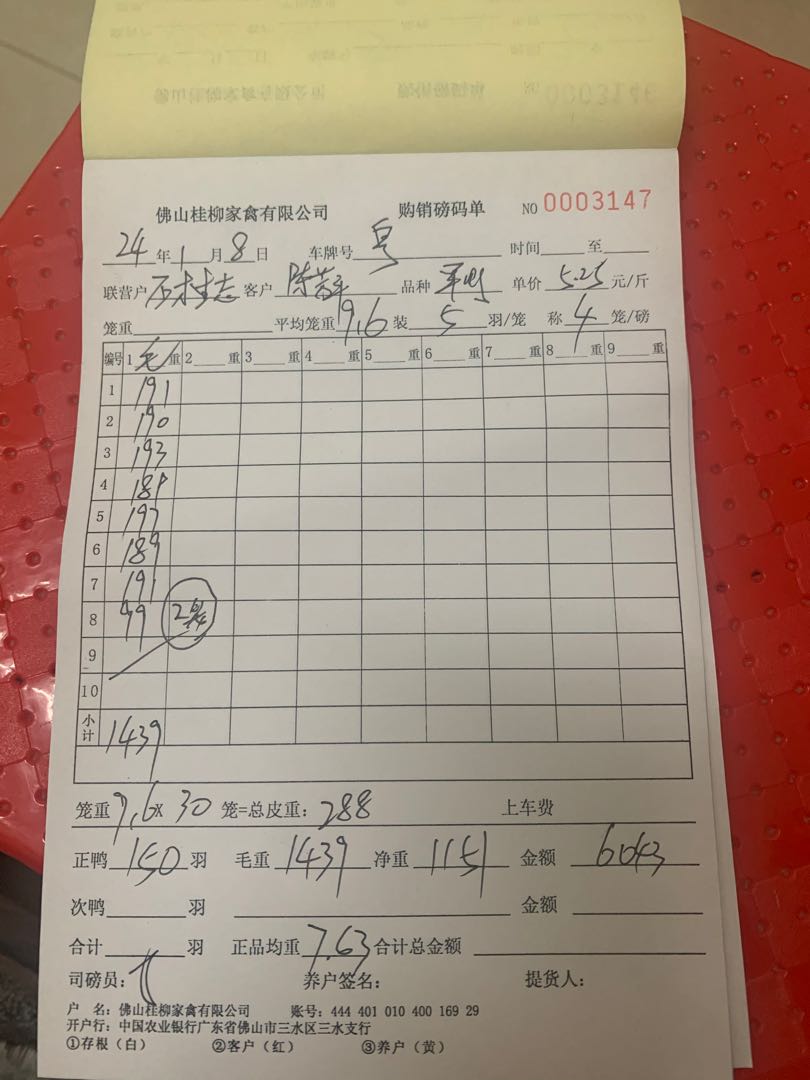 佛山桂柳家禽有限公司 购销磅码单 NO 0003147
24年1月8日 车牌号 时间 至
联营户 客户 陈 品种 单价 5.25 元/斤
笼重 平均笼重 9.6 装 5 羽/笼 称 4 笼/磅
编号 1 毛 重 2 重 3 重 4 重 5 重 6 重 7 重 8 重 9 重
1 191
2 190
3 193
4
5 197
6 189
7 191
8 99
9
10
小计 1439
笼重 9.6 x 30 笼=总皮重: 288 上车费
正鸭 150 羽 毛重 1439 净重 1151 金额 6043
次鸭 羽 金额
合计 羽 正品均重 7.63 合计总金额
司磅员: 养户签名: 提货人:
户 名: 佛山桂柳家禽有限公司 账号: 444 401 010 400 169 29
开户行: 中国农业银行广东省佛山市三水区三水支行
①存根(白) ②客户(红) ③养户(黄)